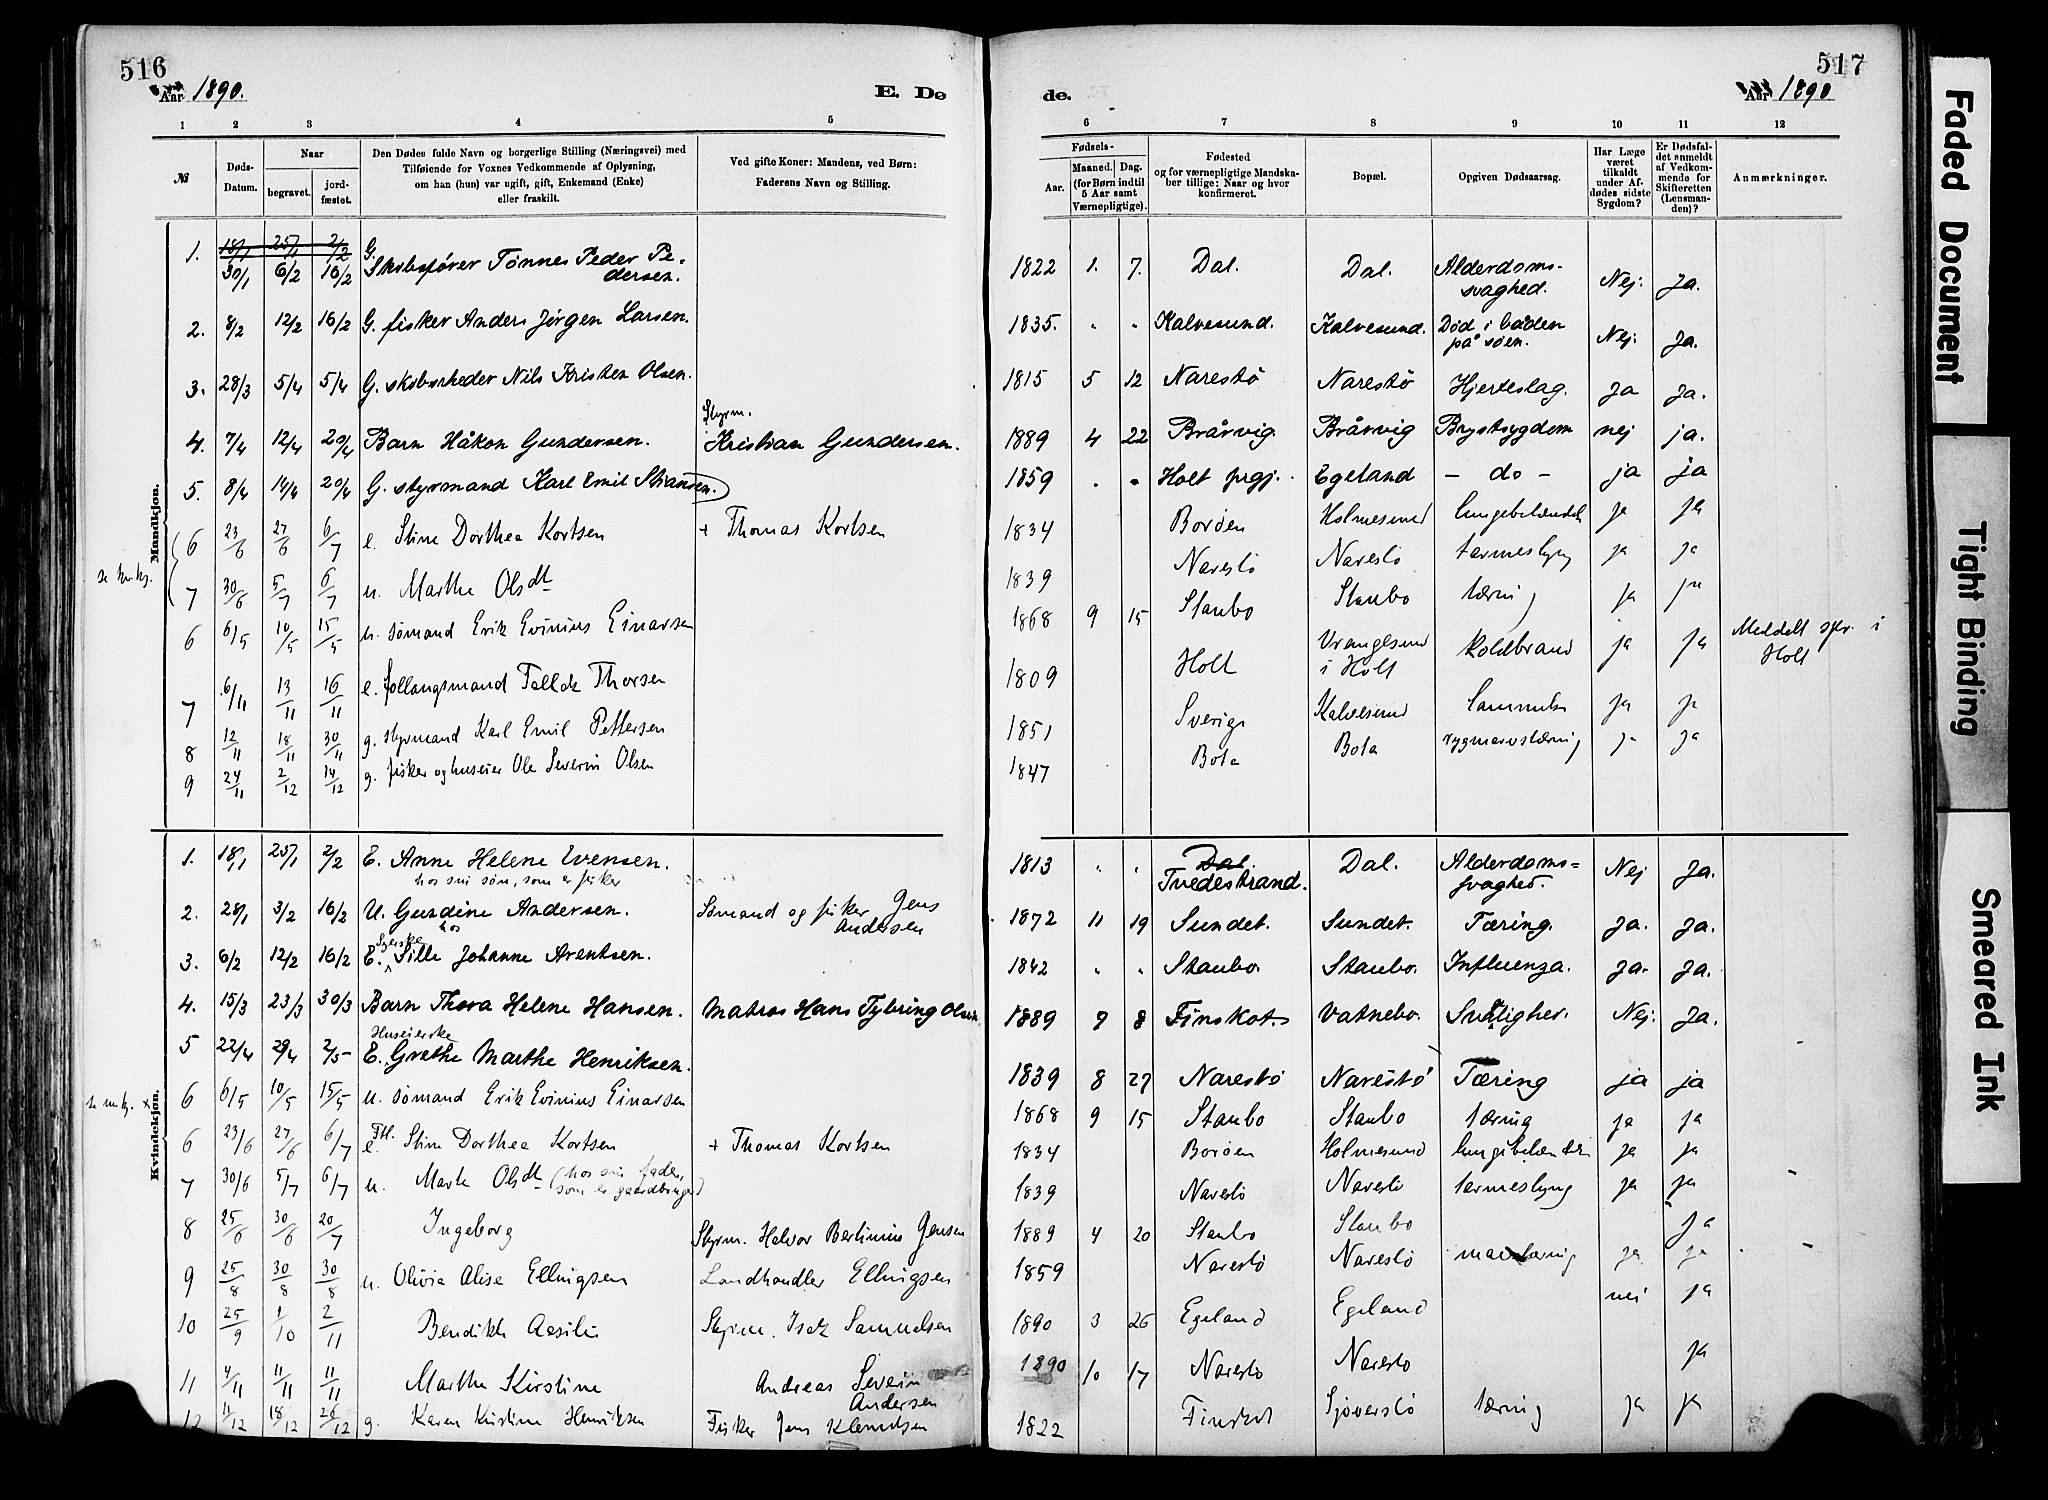 516
Aar 1890.
E. Dø
1 2 3 4 5
№
Døds-Datum.
Naar
begravet.
jord-fæstet.
Den Dødes fulde Navn og borgerlige Stilling (Næringsvei) med
Tilføiende for Voxnes Vedkommende af Oplysning,
om han (hun) var ugift, gift, Enkemand (Enke)
eller fraskilt.
Ved gifte Koner: Mandens, ved Børn:
Faderens Navn og Stilling.
Mandkjøn.
18/1 25/1 2/2 G.
1. 30/1 6/2 16/2 Skibsfører Tønnes Peder Pe-
dersen.
2. 8/2 12/2 16/2 G. fisker Anders Jørgen Larsen.
3. 28/3 5/4 5/4 G. skibsrheder Nils Kristen Olsen.
Styrm.
4. 7/4 12/4 20/4 Barn Håkon Gundersen. Kristian Gundersen.
5. 8/4 14/4 20/4 G. styrmand Karl Emil Stiansen.
6 23/6 27/6 6/7 e. Stine Dorthea Kortsen + Thomas Kortsen
7 30/6 5/7 6/7 u. Marthe Olsdt
6 6/5 10/5 15/5 u. sømand Erik Evinius Einarsen
7 6/11 13/11 16/11 e. Tallak Thorsen
8 12/11 18/11 30/11 g. styrmand Karl Emil Pettersen
9 24/11 2/12 14/12 g. fisker og huseier Ole Severin Olsen
Kvindekjøn.
1. 18/1 25/1 2/2 E. Anne Helene Evensen.
hos sin søn, som er fisker
2. 28/1 3/2 16/2 U. Gundine Andersen. Sømand og fisker Jens
Andersen
3. 6/2 12/2 16/2 E. Sille Johanne Arentsen.
4. 15/3 23/3 30/3 Barn Thora Helene Hansen. Matros Hans Tybring Olsen
Huseierske
5 22/4 29/4 2/5 E. Grethe Marthe Henriksen.
6 6/5 10/5 15/5 u. sømand Erik Evinius Einarsen
6 23/6 27/6 6/7 e. Stine Dorthea Kortsen + Thomas Kortsen
7 30/6 5/7 6/7 u. Marte Olsdt (hos sin fader,
som er gaardbruger)
8 25/6 30/6 20/7 Ingeborg Styrm. Halvor Bertinius Jensen
9 25/8 30/8 30/8 u. Olivia Alise Ellingsen Landhandler Ellingsen
10 25/9 1/10 2/11 Bendikte Aasilie Styrm. Isak Samuelsen
11 4/11 11/11 11/11 Marthe Kirstine Andreas Severin
Andersen
12 11/12 18/12 26/12 g. Karen Kristine Henriksen Fisker Jens Klemetsen
517
Aar 1890
de.
6 7 8 9 10 11 12
Fødsels-
Aar.
Maaned. Dag.
(for Børn indtil
5 Aar samt
Værnepligtige).
Fødested
og for værnepligtige Mandska-
ber tillige: Naar og hvor
konfirmeret.
Bopæl.
Opgiven Dødsaarsag.
Har Læge
været
tilkaldt
under Af-
dødes sidste
Sygdom?
Er Dødsfal-
det anmeldt
af Vedkom-
mende for
Skifteretten
(Lensman-
den)?
Anmærkninger.
1822 1. 7. Dal. Dal. Alderdoms-
svaghed. Nej. Ja.
1835. " " Kalvesund. Kalvesund. Død i båden
på søen. Nej. Ja.
1815 5 12 Narestö Narestö Hjerteslag. Ja Ja.
1889 4 22 Bråvig. Bråvig Brystsygdom nej ja.
1859 " " Holt prgj. Egeland - do - ja ja
1834 Borøen Holmesund ja ja
1839 Narestö Narestö ja ja
1868 9 15 Staubo Staubo tæring ja ja
1809 Holt Vranglesund
i Holt koldbrand ja ja Meddelt spr. i
Holt
1851 Sverige Kalvesund ja ja
1847 Bota Bota rygmarvstæring ja ja
1813 " " Dal.
Tvedestrand. Dal. Alderdoms-
svaghed. Nej Ja.
1872 11 19 Sundet. Sundet. Tæring. Ja. Ja.
1842 " " Staubo. Staubo. Influenza. Ja. Ja.
1889 9 8 Finskot. Vatnebo. Nej. Ja.
1839 8 27 Narestö Narestö Tæring ja ja
1868 9 15 Staubo Staubo tæring ja ja
1834 Borøen Holmesund ja ja
1839 Narestö Narestö ja ja
1889 4 20 Staubo Staubo ja
1859 Narestö Narestö ja ja
1890 3 26 Egeland Egeland nei ja
1890 10 17 Narestö Narestö ja
1822 Finskot Sjøverstö tæring ja ja
Faded Document
Tight Binding
Smeared Ink